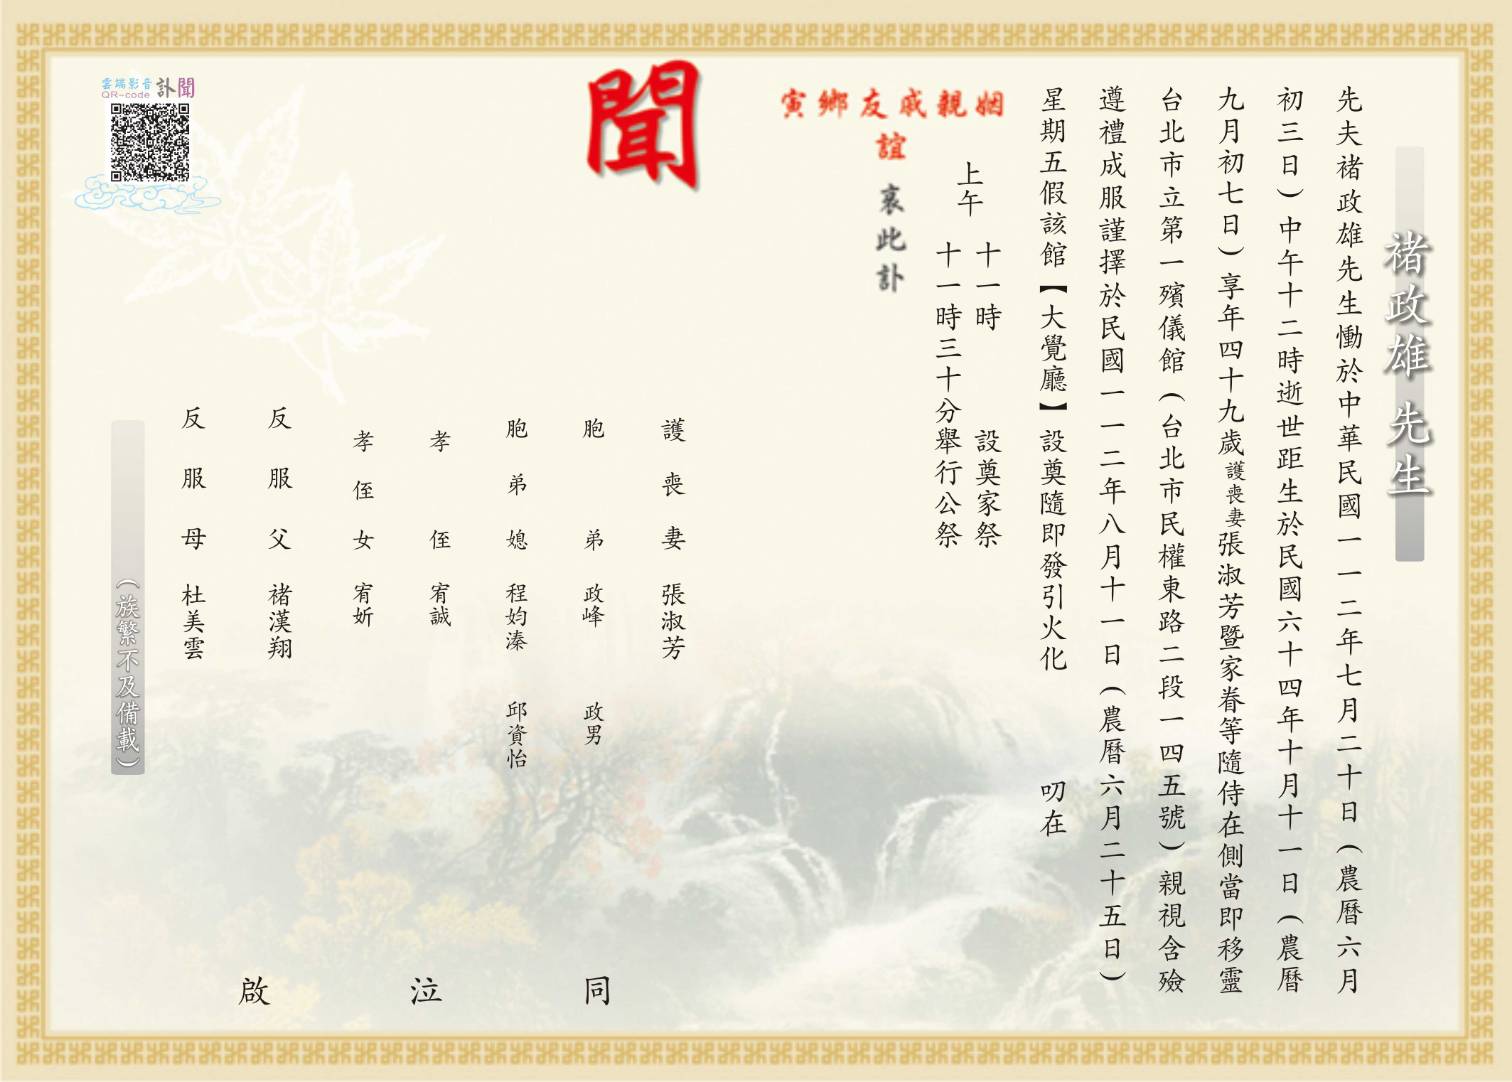 褚政雄 先生
先夫褚政雄先生慟於中華民國一一二年七月二十日（農曆六月
初三日）中午十二時逝世距生於民國六十四年十月十一日（農曆
九月初七日）享年四十九歲護喪妻張淑芳暨家眷等隨侍在側當即移靈
台北市立第一殯儀館（台北市民權東路二段一四五號）親視含殮
遵禮成服謹擇於民國一一二年八月十一日（農曆六月二十五日）
星期五假該館【大覺廳】設奠隨即發引火化 叨在
上午
十一時 設奠家祭
十一時三十分舉行公祭
姻親戚友鄉寅
誼
哀此訃
聞
護喪妻 張淑芳
胞弟 政峰 政男
胞弟媳 程㚬溱 邱資怡
孝侄 宥誠
孝侄女 宥妡
反服父 褚漢翔
反服母 杜美雲
同泣啟
（族繁不及備載）
雲端影音 訃聞
QR-code